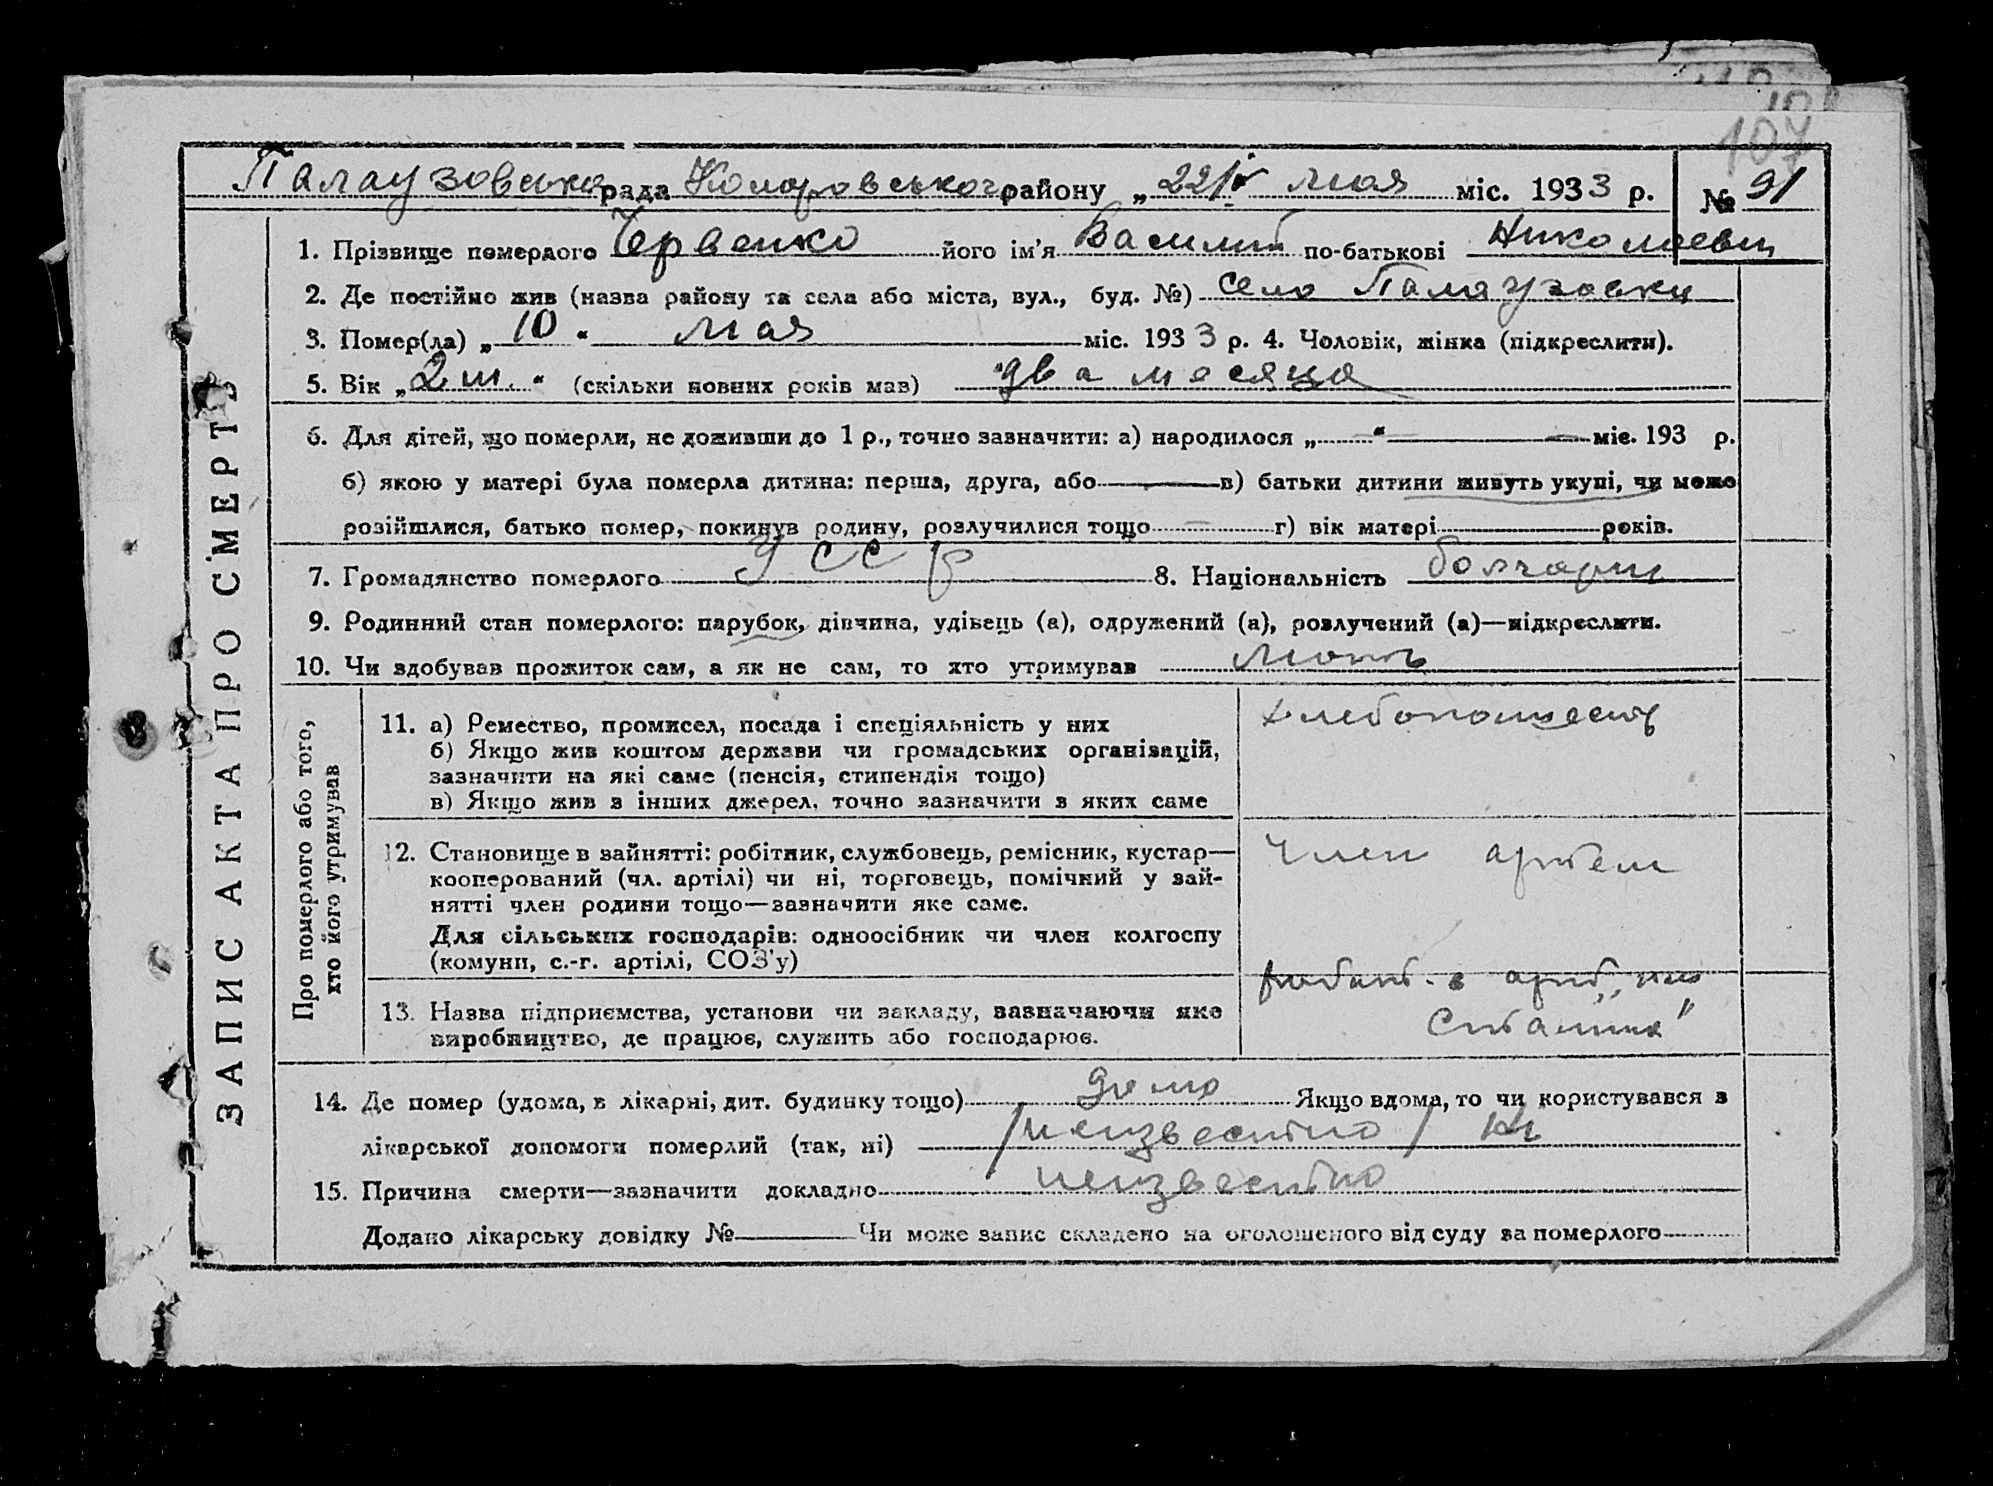 107
Палаузовська рада Коларовського району „22/V мая міс. 1933 р. № 91
ЗАПИС АКТА ПРО СМЕРТЬ
1. Прізвище померлого Червенко його ім'я Василий по-батькові Николаевич
2. Де постійно жив (назва району та села або міста, вул., буд. №) село Палаузовка
3. Помер(ла) „10“ мая міс. 1933 р. 4. Чоловік, жінка (підкреслити).
5. Вік „2 м.“ (скільки повних років мав) два месяца
6. Для дітей, що померли, не доживши до 1 р., точно зазначити: а) народилося „ “ — міс. 193 р.
б) якою у матері була померла дитина: перша, друга, або — в) батьки дитини живуть укупі, чи може
розійшлися, батько помер, покинув родину, розлучилися тощо — г) вік матері років.
7. Громадянство померлого УССР 8. Національність болгарин
9. Родинний стан померлого: парубок, дівчина, удівець (а), одружений (а), розлучений (а)—підкреслити.
10. Чи здобував прожиток сам, а як не сам, то хто утримував мать
Про померлого або того,
хто його утримував
11. а) Ремество, промисел, посада і спеціяльність у них
б) Якщо жив коштом держави чи громадських організацій,
зазначити на які саме (пенсія, стипендія тощо)
в) Якщо жив з інших джерел, точно зазначити з яких саме
хлебопашество
12. Становище в зайнятті: робітник, службовець, ремісник, кустар—
кооперований (чл. артілі) чи ні, торговець, помічний у зай-
нятті член родини тощо—зазначити яке саме.
Для сільських господарів: одноосібник чи член колгоспу
(комуни, с.-г. артілі, СОЗ'у)
Член артели
13. Назва підприємства, установи чи закладу, зазначаючи яке
виробництво, де працює, служить або господарює.
работ. в арт. „им
Сталина“
14. Де помер (удома, в лікарні, дит. будинку тощо) дома Якщо вдома, то чи користувався з
лікарської допомоги померлий (так, ні) /неизвестно/
15. Причина смерти—зазначити докладно неизвестно
Додано лікарську довідку № — Чи може запис складено на оголошеного від суду за померлого